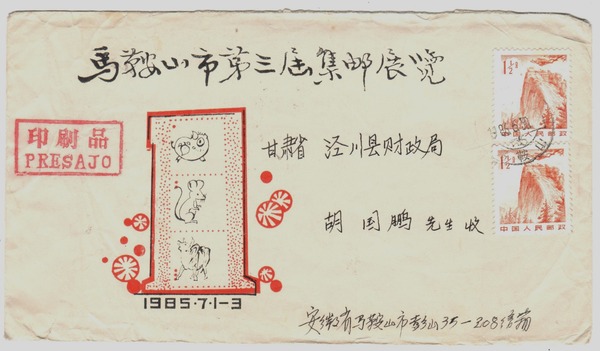 马鞍山市第三届集邮展览
印刷品
PRESAJO
甘肃省 泾川县财政局
胡国鹏 先生收
1985·7·1-3
安徽省马鞍山市 35-208信箱
1½
中国人民邮政
1½
中国人民邮政